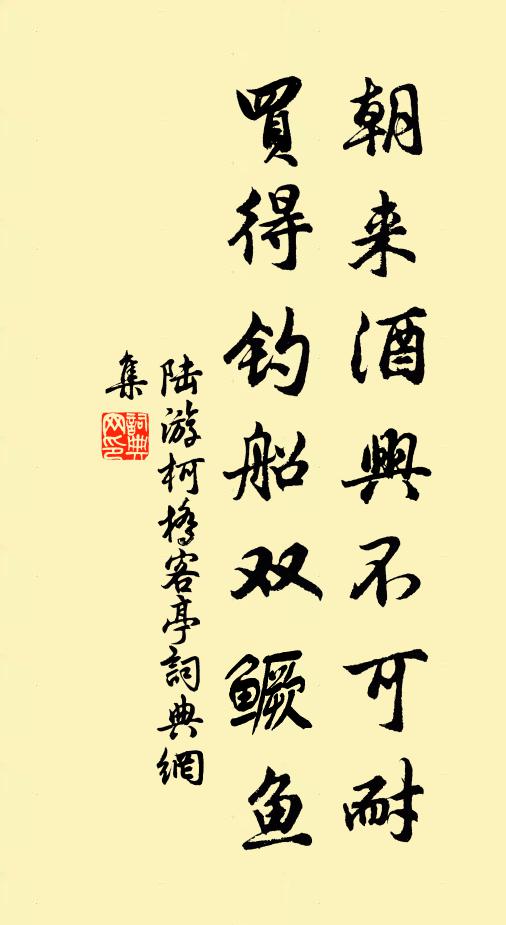 朝来酒興不可耐
買得钓船双鳜鱼
陆游柯橋客亭詞典網
集
詞典網印